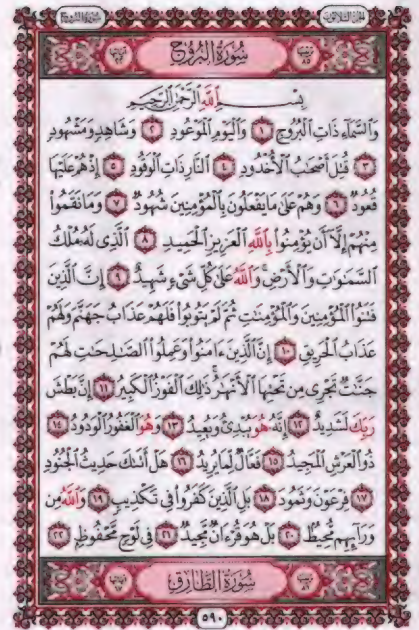 الجزء الثلاثون سورة البروج
سُورَةُ الْبُرُوجِ
بِسْمِ اللَّهِ الرَّحْمَٰنِ الرَّحِيمِ
وَالسَّمَاءِ ذَاتِ الْبُرُوجِ ١ وَالْيَوْمِ الْمَوْعُودِ ٢ وَشَاهِدٍ وَمَشْهُودٍ
٣ قُتِلَ أَصْحَابُ الْأُخْدُودِ ٤ النَّارِ ذَاتِ الْوَقُودِ ٥ إِذْ هُمْ عَلَيْهَا
قُعُودٌ ٦ وَهُمْ عَلَىٰ مَا يَفْعَلُونَ بِالْمُؤْمِنِينَ شُهُودٌ ٧ وَمَا نَقَمُوا
مِنْهُمْ إِلَّا أَن يُؤْمِنُوا بِاللَّهِ الْعَزِيزِ الْحَمِيدِ ٨ الَّذِي لَهُ مُلْكُ
السَّمَٰوَٰتِ وَالْأَرْضِ وَاللَّهُ عَلَىٰ كُلِّ شَيْءٍ شَهِيدٌ ٩ إِنَّ الَّذِينَ
فَتَنُوا الْمُؤْمِنِينَ وَالْمُؤْمِنَٰتِ ثُمَّ لَمْ يَتُوبُوا فَلَهُمْ عَذَابُ جَهَنَّمَ وَلَهُمْ
عَذَابُ الْحَرِيقِ ١٠ إِنَّ الَّذِينَ ءَامَنُوا وَعَمِلُوا الصَّٰلِحَٰتِ لَهُمْ
جَنَّٰتٌ تَجْرِي مِن تَحْتِهَا الْأَنْهَٰرُ ذَٰلِكَ الْفَوْزُ الْكَبِيرُ ١١ إِنَّ بَطْشَ
رَبِّكَ لَشَدِيدٌ ١٢ إِنَّهُ هُوَ يُبْدِئُ وَيُعِيدُ ١٣ وَهُوَ الْغَفُورُ الْوَدُودُ ١٤
ذُو الْعَرْشِ الْمَجِيدُ ١٥ فَعَّالٌ لِّمَا يُرِيدُ ١٦ هَلْ أَتَىٰكَ حَدِيثُ الْجُنُودِ
١٧ فِرْعَوْنَ وَثَمُودَ ١٨ بَلِ الَّذِينَ كَفَرُوا فِي تَكْذِيبٍ ١٩ وَاللَّهُ مِن
وَرَائِهِم مُّحِيطٌ ٢٠ بَلْ هُوَ قُرْءَانٌ مَّجِيدٌ ٢١ فِي لَوْحٍ مَّحْفُوظٍ ٢٢
سُورَةُ الطَّارِقِ
٥٩٠